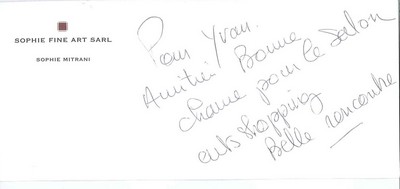 SOPHIE FINE ART SARL
SOPHIE MITRANI
Pour Yvan.
Amitié Bonne
chance pour le salon
art shopping
Belle rencontre